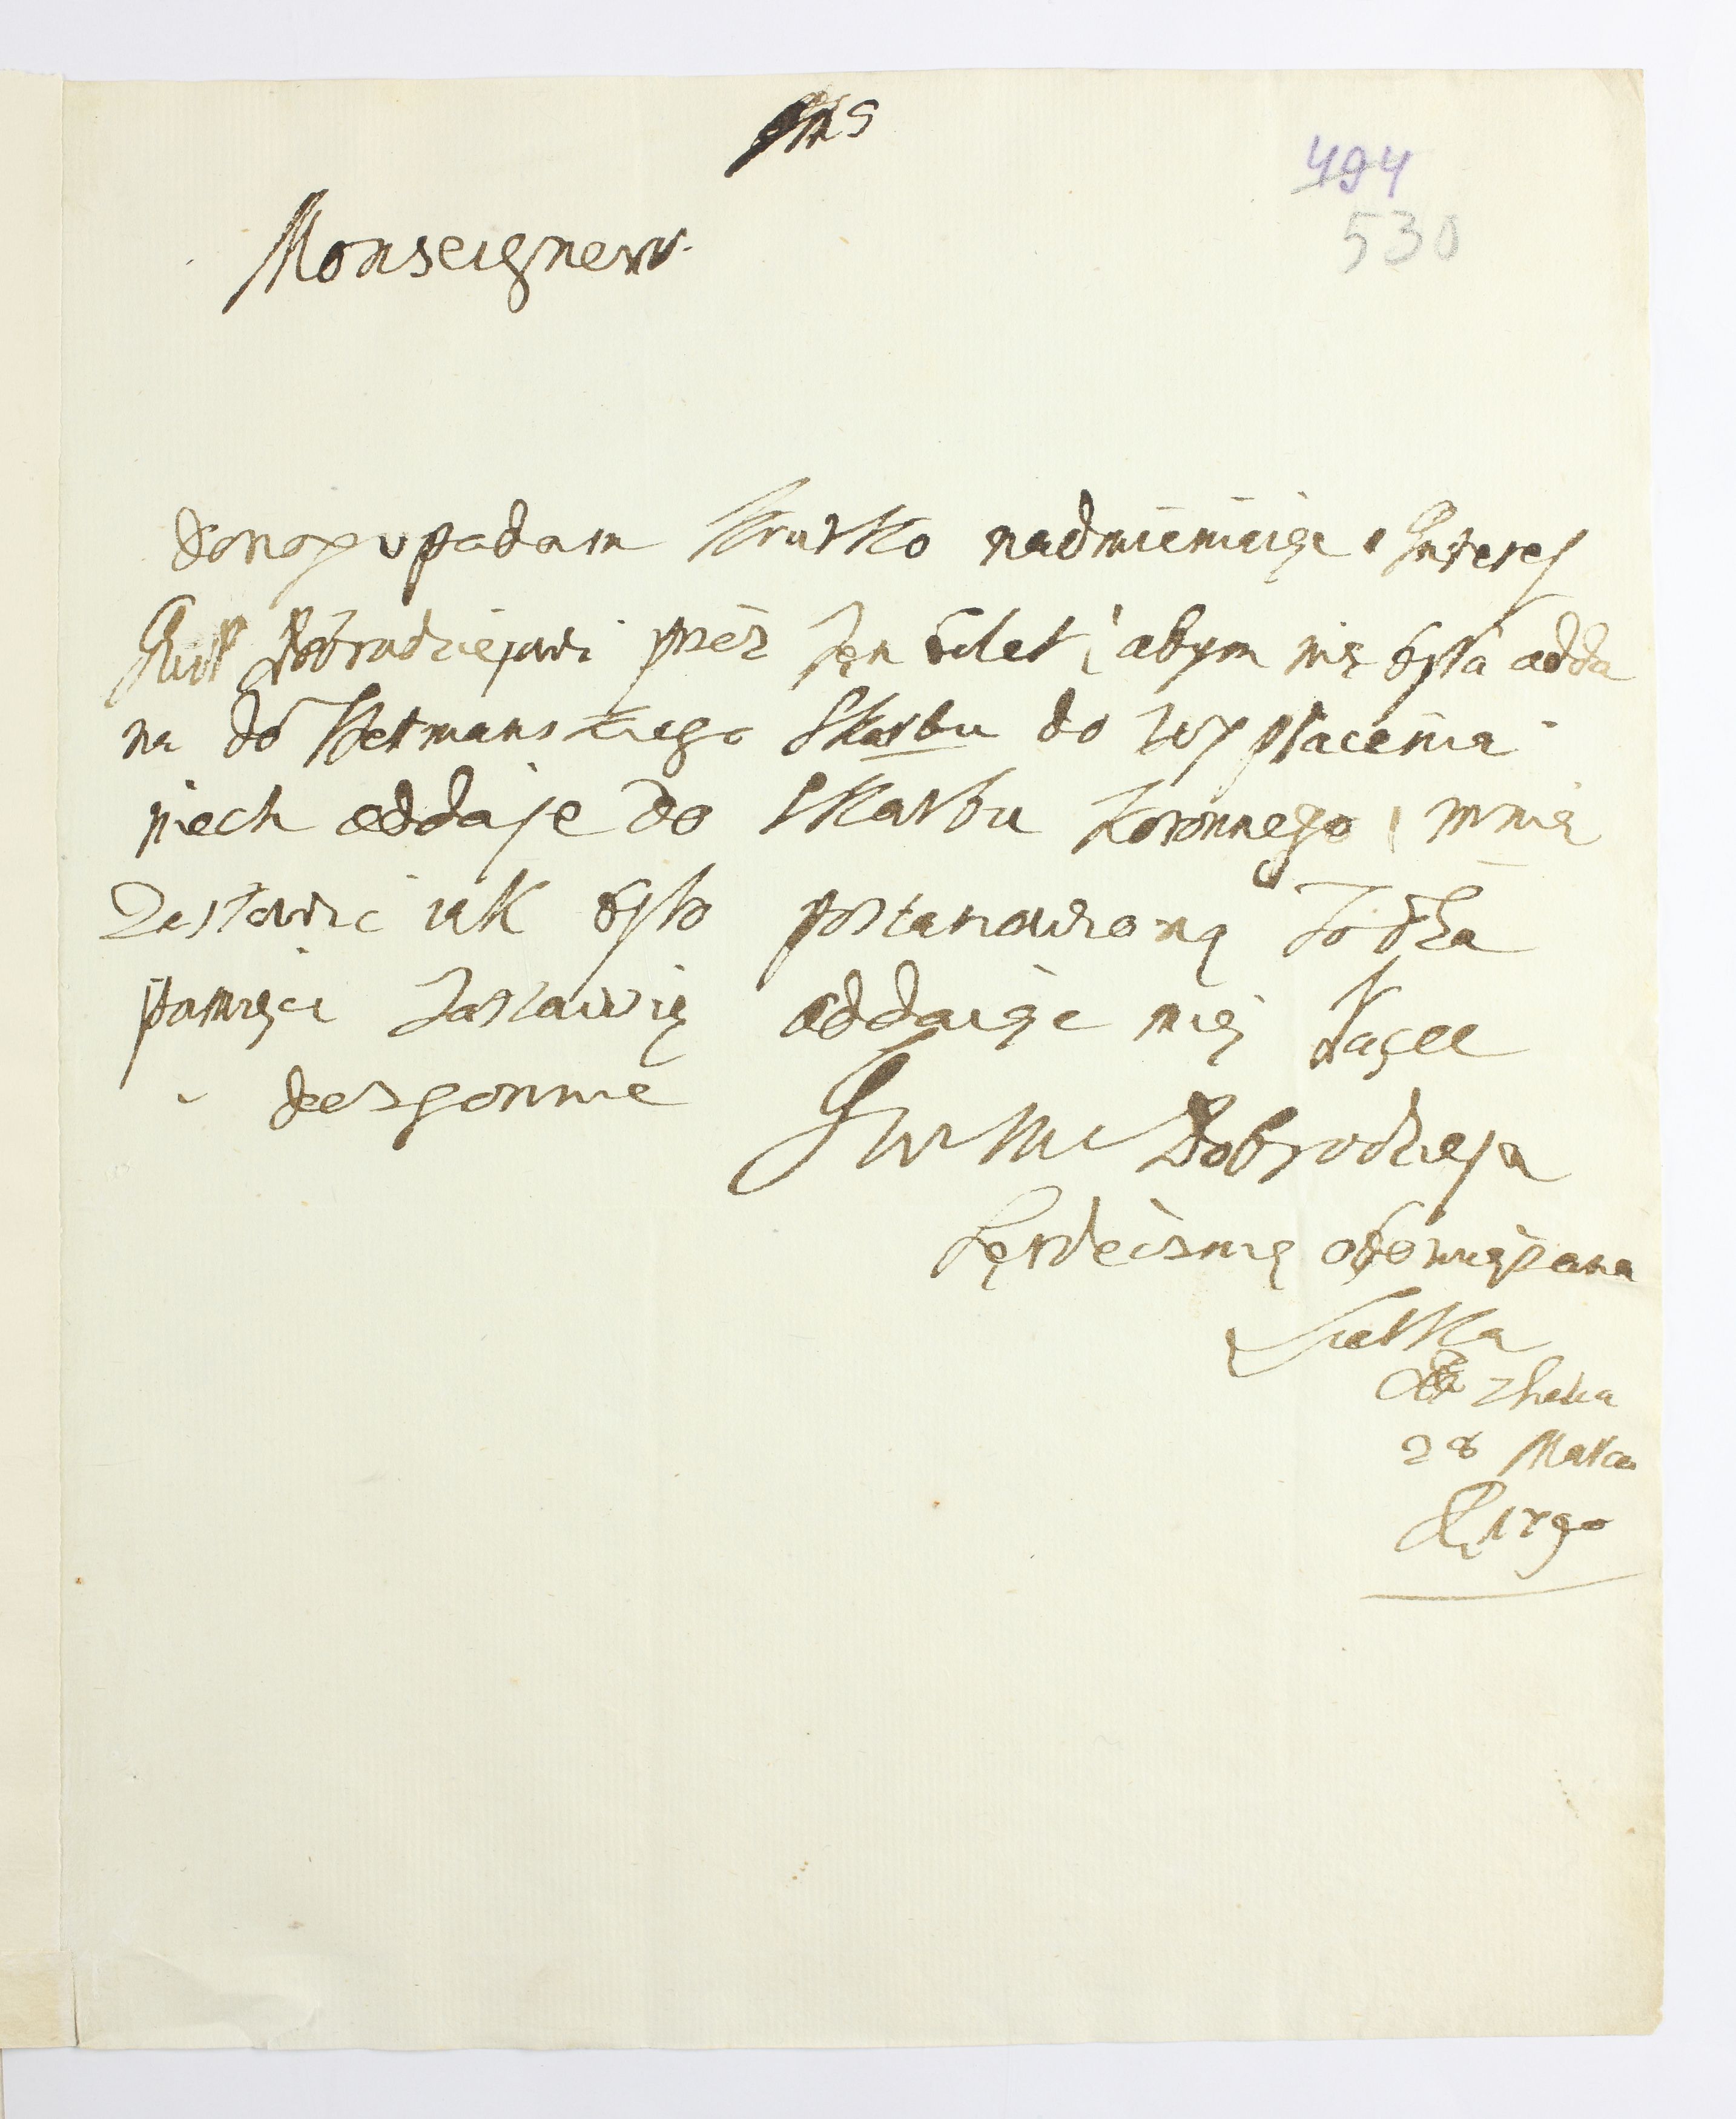 494
530
Monseigneur
donog upadam krutko nadmieniaięc Interes
Dobrodziejowi przez ten bilet, abym nię była odda
na do Hetmanskiego Skarbu do wypłacenia
niech oddaje do Skarbu koronnego, mnie
Zastawic iak było postanowioną
pamięci Zastawię oddaięc mię łasce
dozgonnie
Dobrodzieja
Serdecznię obowiązana
Sułka
28 Marca